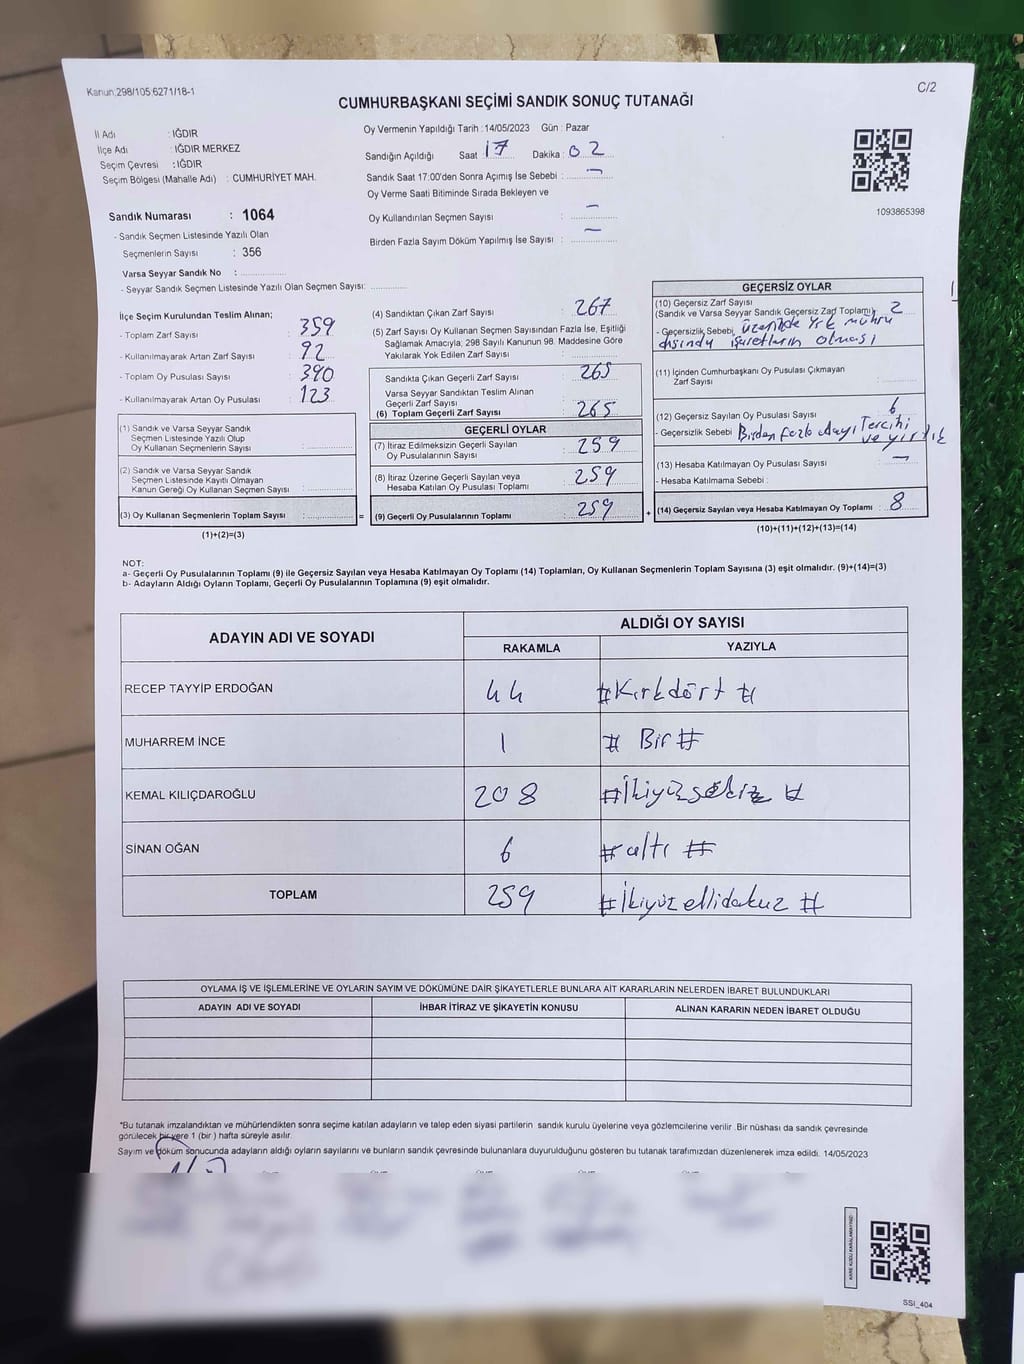 Kanun:298/105 6271/18-1
C/2
CUMHURBAŞKANI SEÇİMİ SANDIK SONUÇ TUTANAĞI
İl Adı : IĞDIR
İlçe Adı : IĞDIR MERKEZ
Seçim Çevresi : IĞDIR
Seçim Bölgesi (Mahalle Adı) : CUMHURİYET MAH.
Sandık Numarası : 1064
- Sandık Seçmen Listesinde Yazılı Olan
Seçmenlerin Sayısı : 356
Varsa Seyyar Sandık No :
- Seyyar Sandık Seçmen Listesinde Yazılı Olan Seçmen Sayısı:
Oy Vermenin Yapıldığı Tarih : 14/05/2023 Gün : Pazar
Sandığın Açıldığı Saat : 17 Dakika : 02
Sandık Saat 17:00'den Sonra Açımış İse Sebebi : -
Oy Verme Saati Bitiminde Sırada Bekleyen ve
Oy Kullandırılan Seçmen Sayısı : -
Birden Fazla Sayım Döküm Yapılmış İse Sayısı : -
1093865398
İlçe Seçim Kurulundan Teslim Alınan;
- Toplam Zarf Sayısı : 359
- Kullanılmayarak Artan Zarf Sayısı : 92
- Toplam Oy Pusulası Sayısı : 390
- Kullanılmayarak Artan Oy Pusulası : 123
(1) Sandık ve Varsa Seyyar Sandık
Seçmen Listesinde Yazılı Olup
Oy Kullanan Seçmenlerin Sayısı :
(2) Sandık ve Varsa Seyyar Sandık
Seçmen Listesinde Kayıtlı Olmayan
Kanun Gereği Oy Kullanan Seçmen Sayısı :
(3) Oy Kullanan Seçmenlerin Toplam Sayısı :
(1)+(2)=(3)
(4) Sandıktan Çıkan Zarf Sayısı : 267
(5) Zarf Sayısı Oy Kullanan Seçmen Sayısından Fazla İse, Eşitliği
Sağlamak Amacıyla; 298 Sayılı Kanunun 98. Maddesine Göre
Yakılarak Yok Edilen Zarf Sayısı :
Sandıkta Çıkan Geçerli Zarf Sayısı : 265
Varsa Seyyar Sandıktan Teslim Alınan
Geçerli Zarf Sayısı :
(6) Toplam Geçerli Zarf Sayısı : 265
GEÇERLİ OYLAR
(7) İtiraz Edilmeksizin Geçerli Sayılan
Oy Pusulalarının Sayısı : 259
(8) İtiraz Üzerine Geçerli Sayılan veya
Hesaba Katılan Oy Pusulası Toplamı : 259
(9) Geçerli Oy Pusulalarının Toplamı : 259
GEÇERSİZ OYLAR
(10) Geçersiz Zarf Sayısı
(Sandık ve Varsa Seyyar Sandık Geçersiz Zarf Toplamı) : 2
- Geçersizlik Sebebi Üzerinde Ysk mührü
dışında işaretlerin olması
(11) İçinden Cumhurbaşkanı Oy Pusulası Çıkmayan
Zarf Sayısı :
(12) Geçersiz Sayılan Oy Pusulası Sayısı : 6
- Geçersizlik Sebebi Birden fazla Aday Tercihi
ve yırtık
(13) Hesaba Katılmayan Oy Pusulası Sayısı : -
- Hesaba Katılmama Sebebi :
(14) Geçersiz Sayılan veya Hesaba Katılmayan Oy Toplamı : 8
(10)+(11)+(12)+(13)=(14)
NOT:
a- Geçerli Oy Pusulalarının Toplamı (9) ile Geçersiz Sayılan veya Hesaba Katılmayan Oy Toplamı (14) Toplamları, Oy Kullanan Seçmenlerin Toplam Sayısına (3) eşit olmalıdır. (9)+(14)=(3)
b- Adayların Aldığı Oyların Toplamı, Geçerli Oy Pusulalarının Toplamına (9) eşit olmalıdır.
ADAYIN ADI VE SOYADI ALDIĞI OY SAYISI
RAKAMLA YAZIYLA
RECEP TAYYİP ERDOĞAN 44 #Kırkdört #
MUHARREM İNCE 1 # Bir #
KEMAL KILIÇDAROĞLU 208 #İkiyüzsekiz #
SİNAN OĞAN 6 #altı #
TOPLAM 259 #İkiyüzellidokuz #
OYLAMA İŞ VE İŞLEMLERİNE VE OYLARIN SAYIM VE DÖKÜMÜNE DAİR ŞİKAYETLERLE BUNLARA AİT KARARLARIN NELERDEN İBARET BULUNDUKLARI
ADAYIN ADI VE SOYADI İHBAR İTİRAZ VE ŞİKAYETİN KONUSU ALINAN KARARIN NEDEN İBARET OLDUĞU
*Bu tutanak imzalandıktan ve mühürlendikten sonra seçime katılan adayların ve talep eden siyasi partilerin sandık kurulu üyelerine veya gözlemcilerine verilir .Bir nüshası da sandık çevresinde
görülecek bir yere 1 (bir ) hafta süreyle asılır.
Sayım ve döküm sonucunda adayların aldığı oyların sayılarını ve bunların sandık çevresinde bulunanlara duyurulduğunu gösteren bu tutanak tarafımızdan düzenlenerek imza edildi. 14/05/2023
KARE KODU KARALAMAYINIZ!
SSI_404